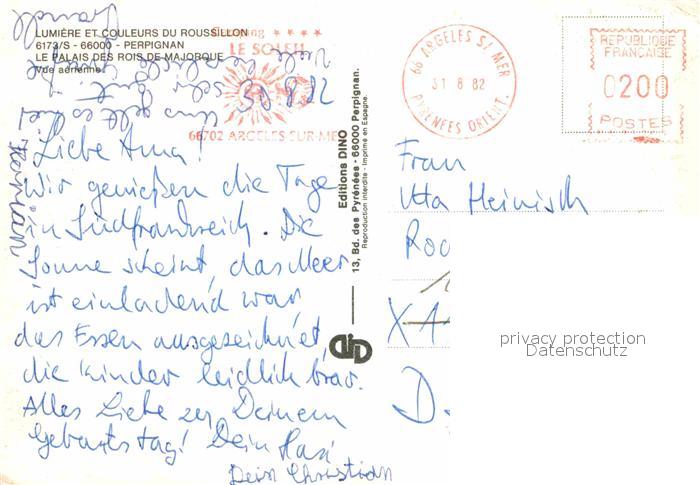 LUMIÈRE ET COULEURS DU ROUSSILLON
6173/S - 66000 - PERPIGNAN
LE PALAIS DES ROIS DE MAJORQUE
Vue aérienne.
LE SOLEIL
66702 ARGELES-SUR-MER
66 ARGELES S/ MER
31 8 82
PYRENEES ORIENT.
REPUBLIQUE
FRANCAISE
0200
POSTES
Liebe Anna!
Wir genießen die Tage
in Südfrankreich. Die
Sonne scheint, das Meer
ist einladend war,
das Essen ausgezeichnet,
die Kinder leidlich brav.
Alles Liebe zu Deinem
Geburtstag! Dein Hasi
Dein Christian
Editions DINO
13, Bd. des Pyrénées - 66000 Perpignan.
Reproduction interdite - Imprimé en Espagne.
Frau
Uta Heinisch
XA
D.
privacy protection
Datenschutz